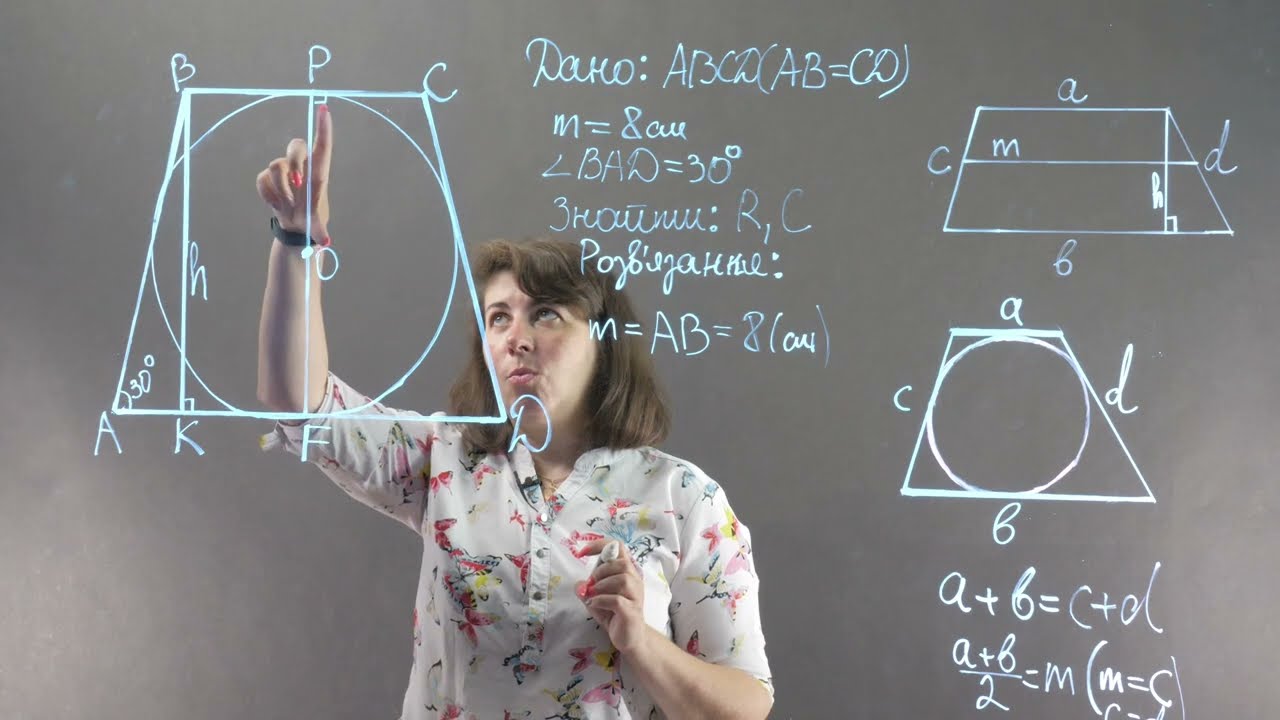 B P C
h
O
30°
A K F D
Дано: ABCD(AB=CD)
m = 8см
∠BAD=30°
Знайти: R, C
Розв'язання:
m = AB = 8(см)
a
c m d
h
в
a
c d
в
a+в=c+d
a+в/2=m(m=c)
c=d